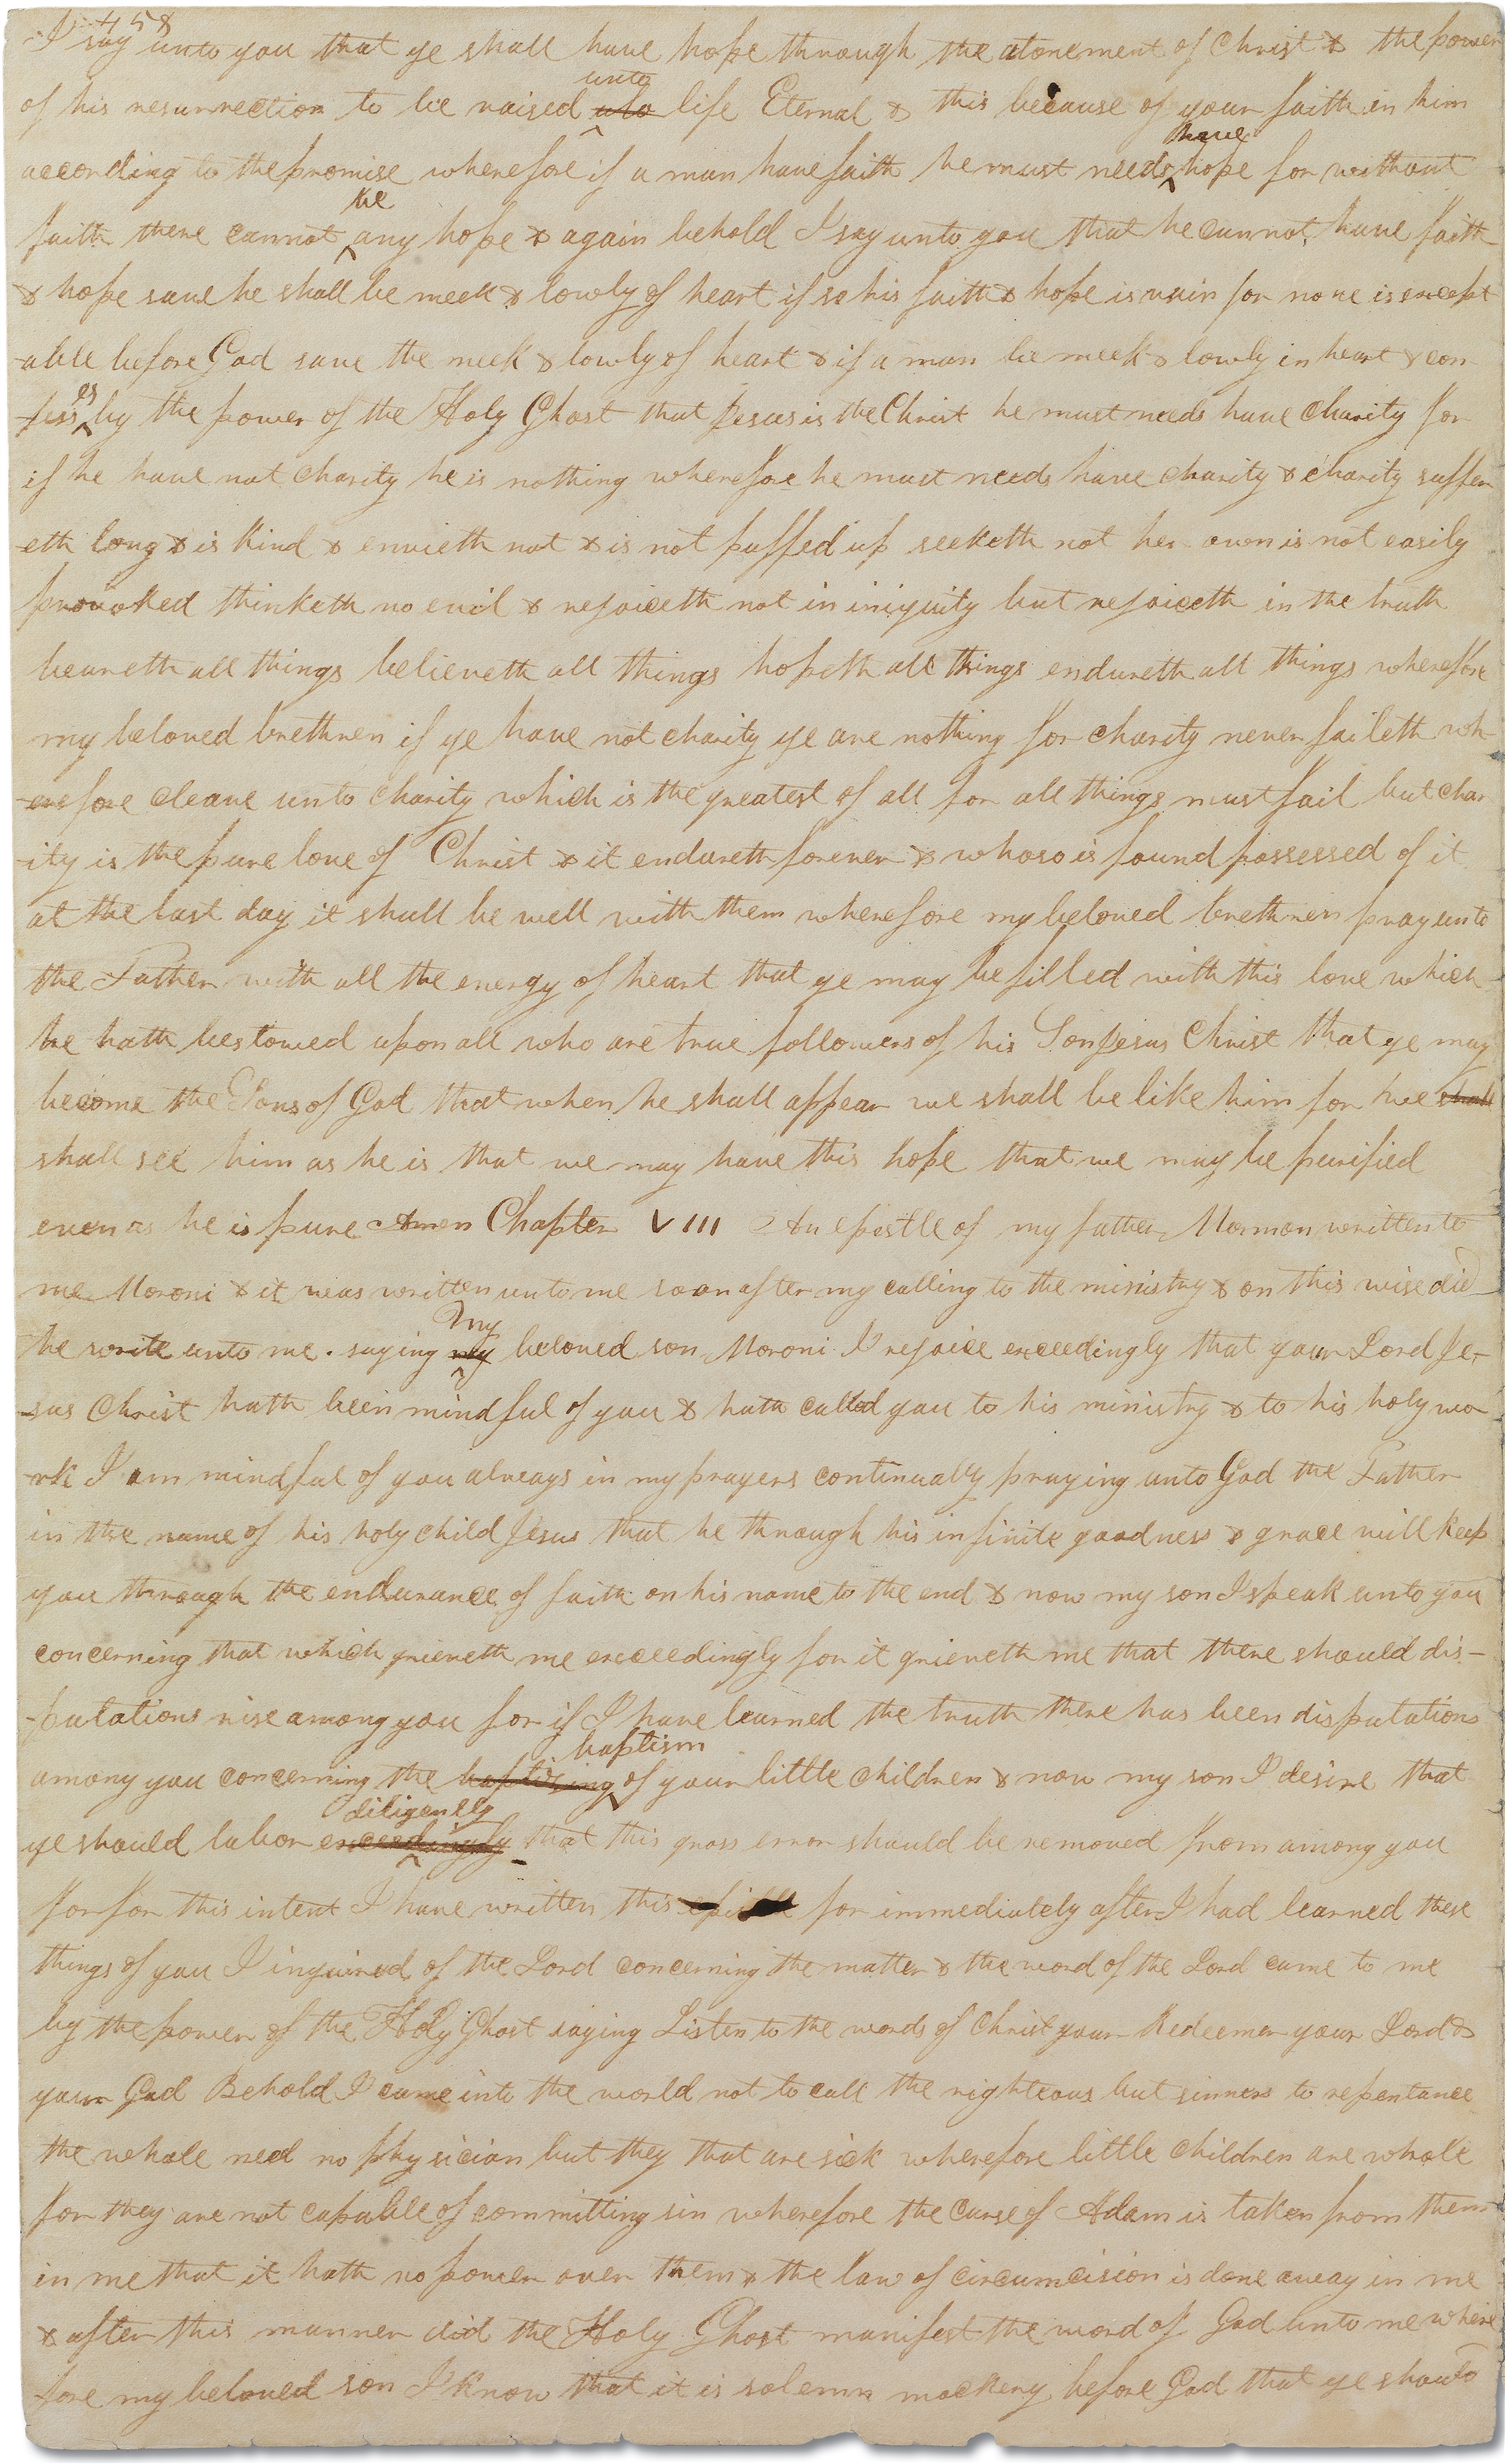 458
I say unto you that ye shall have hope through the atonement of Christ & the power
of his resurrection to be raised unto life Eternal & this because of your faith in him
according to the promise wherefore if a man have faith he must needs have hope for without
faith there cannot be any hope & again behold I say unto you that he cannot have faith
& hope save he shall be meek & lowly of heart if so his faith & hope is vain for none is except
-able before God save the meek & lowly of heart & if a man be meek & lowly in heart & con
-fesses by the power of the Holy Ghost that Jesus is the Christ he must needs have charity for
if he have not charity he is nothing wherefore he must needs have charity & charity suffer
-eth long & is kind & envieth not & is not puffed up seeketh not her own is not easily
provoked thinketh no evil & rejoiceth not in iniquity but rejoiceth in the truth
beareth all things believeth all things hopeth all things endureth all things wherefore
my beloved brethren if ye have not charity ye are nothing for charity never faileth wh-
-erefore cleave unto charity which is the greatest of all for all things must fail but char
-ity is the pure love of Christ & it endureth forever & whoso is found possessed of it
at the last day it shall be well with them wherefore my beloved brethren pray unto
the Father with all the energy of heart that ye may be filled with this love which
he hath bestowed upon all who are true followers of his Son Jesus Christ that ye may
become the Sons of God that when he shall appear we shall be like him for we shall
shall see him as he is that we may have this hope that we may be purified
even as he is pure Amen Chapter VIII An epistle of my father Mormon written to
me Moroni & it was written unto me soon after my calling to the ministry & on this wise did
he write unto me. saying My beloved son Moroni I rejoice exceedingly that your Lord Je-
-sus Christ hath been mindful of you & hath called you to his ministry & to his holy wo
-rk I am mindful of you always in my prayers continually praying unto God the Father
in the name of his holy child Jesus that he through his infinite goodness & grace will keep
you through the endurance of faith on his name to the end & now my son I speak unto you
concerning that which grieveth me exceedingly for it grieveth me that there should dis-
-putations rise among you for if I have learned the truth there has been disputations
among you concerning the baptizing baptism of your little children & now my son I desire that
ye should labor exceedingly diligently that this gross error should be removed from among you
for for this intent I have written this epistle for immediately after I had learned these
things of you I inquired of the Lord concerning the matter & the word of the Lord came to me
by the power of the Holy Ghost saying Listen to the words of Christ your Redeemer your Lord &
your God Behold I came into the world not to call the righteous but sinners to repentance
the whole need no physician but they that are sick wherefore little children are whole
for they are not capable of committing sin wherefore the curse of Adam is taken from them
in me that it hath no power over them & the law of circumcision is done away in me
& after this manner did the Holy Ghost manifest the word of God unto me where
fore my beloved son I know that it is solemn mockery before God that ye should